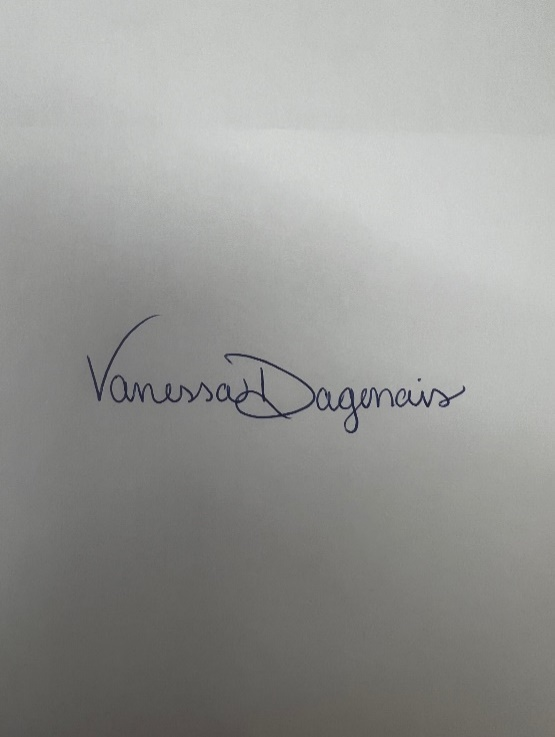 Vanessa Dagenais